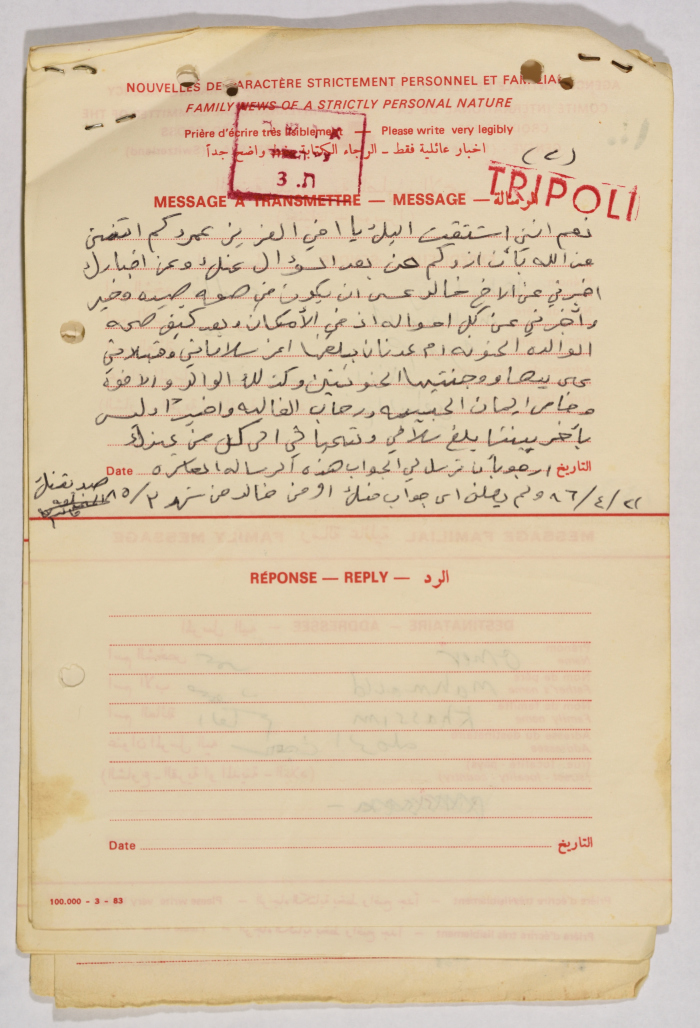 NOUVELLES DE CARACTÈRE STRICTEMENT PERSONNEL ET FAMILIAL
FAMILY NEWS OF A STRICTLY PERSONAL NATURE
Prière d'écrire très lisiblement — Please write very legibly
اخبار عائلية فقط ـ الرجاء الكتابة بخط واضح جداً
ת.ז
TRIPOLI
MESSAGE A TRANSMETTRE — MESSAGE — الرسالة
نعم انني اشتقت اليك يا اخي العزيز عمر وكم اتمنى
من الله بأن ازوركم من بعد السؤال عنك وعن اخبارك
اخبرني عن الاخ خالد عسى ان يكون في صحه جيده وخير
وأخبرني عن كل احواله اذ في الأمكان وبعد كيف صحه
الوالده الحنونه ام عدنان بلغها اعز سلاماتي وقبلاتي
على يديها ووجنتيها الحنونتين وكذلك الوالد والاخوة
وخاص ايمان الحبيبه ورحاب الغاليه واخيرا وليس
بآخر بيننا بلغ سلامي وتحياتي الى كل من عندك
Date ارجو بأن ترسل لي الجواب هذه الرساله العاشره التاريخ
٨٦/٤/٢١ ولم يصلني اي جواب منك او من خالد من شهر ٨٥/٢
صديقتك
RÉPONSE — REPLY — الرد
Date التاريخ
100.000 - 3 - 83